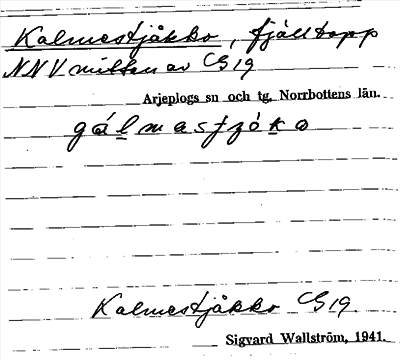 Kalmestjåkko, fjälltopp
NNV mitten av C519
Arjeplogs sn och tg, Norrbottens län.
gálmastjȯko
Kalmestjåkko C519
Sigvard Wallström, 1941.